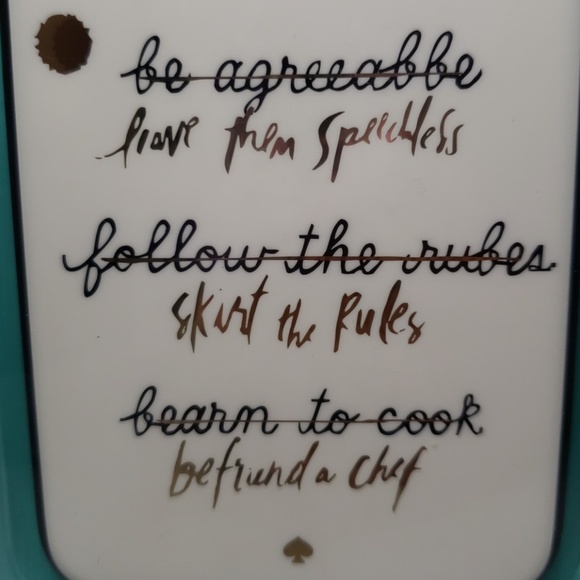 be agreeabbe
leave them speechless
follow the rubes
skirt the Rules
bearn to cook
befriend a chef